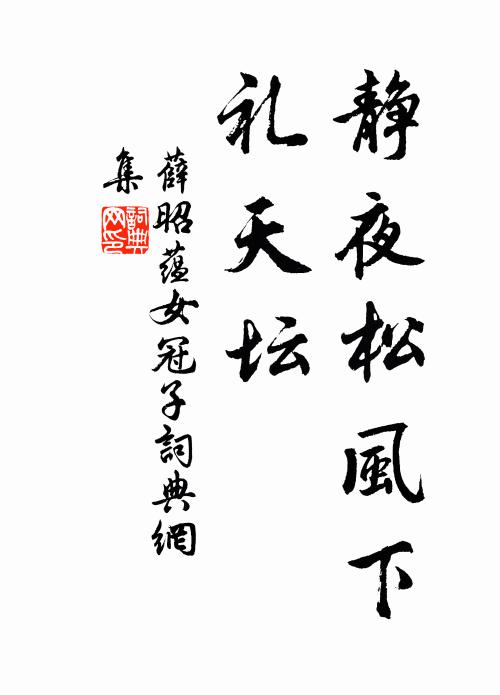 静夜松風下
礼天坛
薛昭蕴女冠子詞典網
集
詞典網印